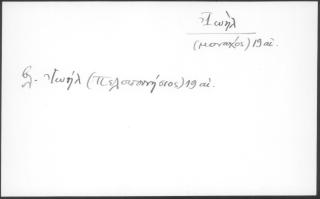 Ἰωήλ
(μοναχός) 19 αἰ.
βλ. Ἰωήλ (Πελοποννήσιος) 19 αἰ.